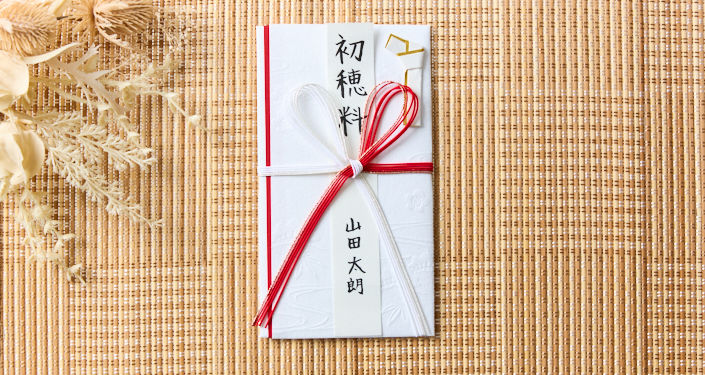 初穂料
山田太朗